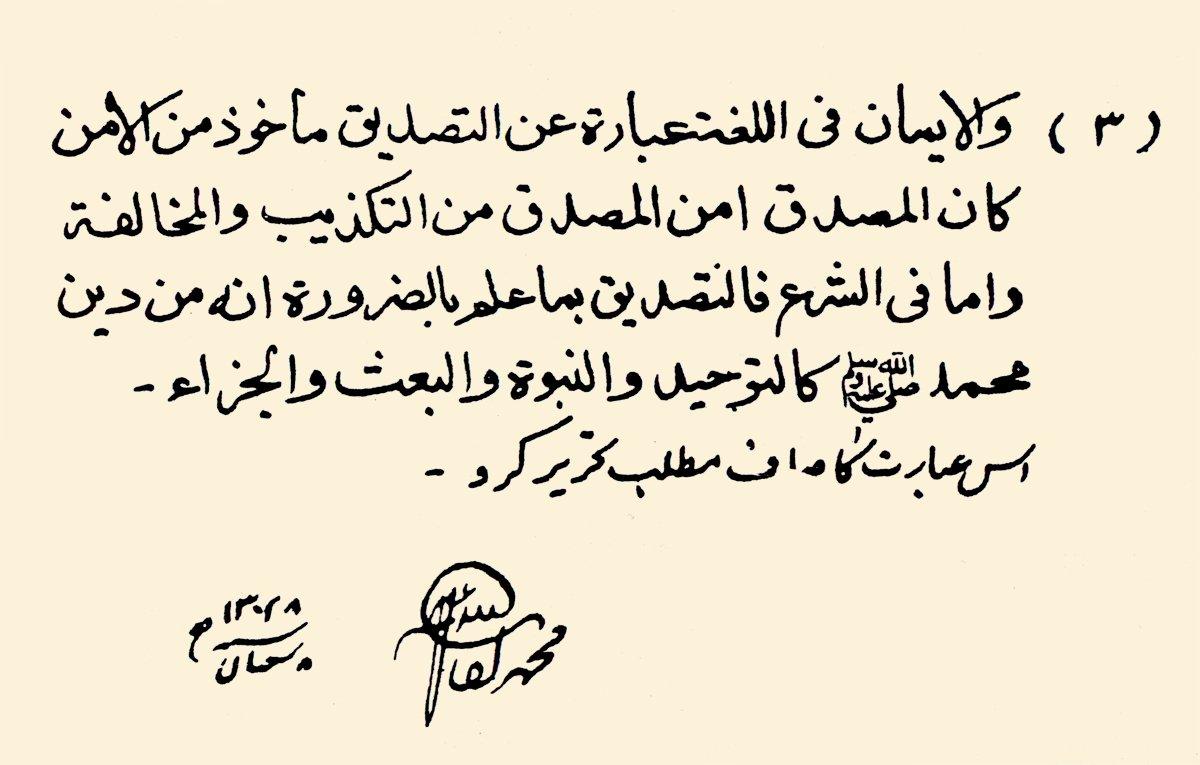 (٣) والايمان فى اللغة عبارة عن التصديق مأخوذ من الأمن
كان المصدق امن المصدق من التكذيب والمخالفة
واما فى الشرع فالتصديق بما علم بالضرورة انه من دين
محمد ﷺ كالتوحيد والنبوة والبعث والجزاء -
اس عبارت كا صاف مطلب تحرير كرو -
محمد كفايت الله